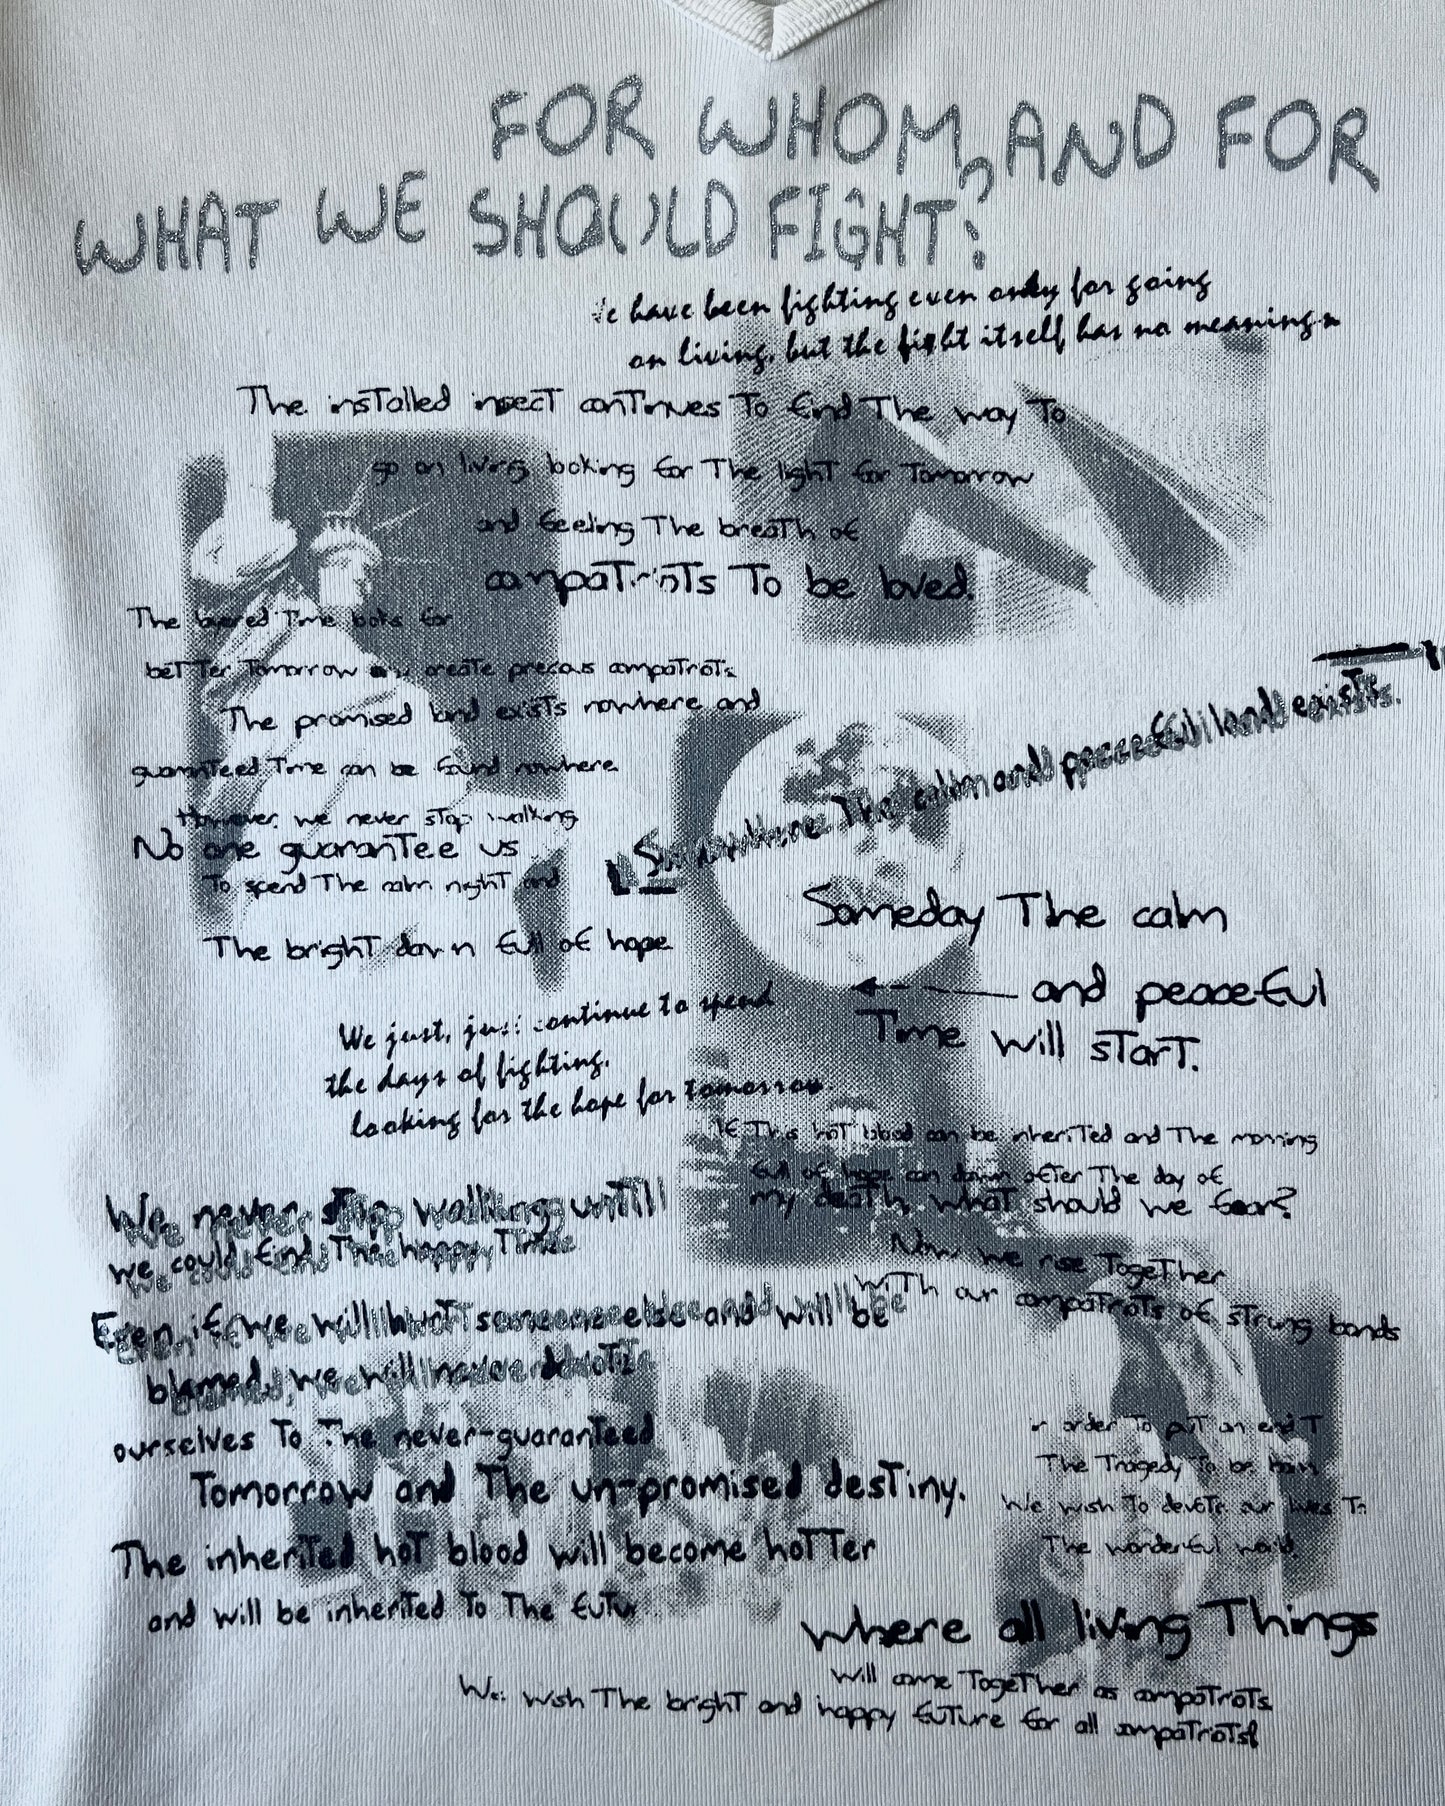 FOR WHOM, AND FOR
WHAT WE SHOULD FIGHT?
have been fighting even only for going
on living, but the fight itself has no meaning.
The installed insect continues To find The way To
go on living looking for The light for Tomorrow
and feeling The breath of
compatriots To be loved.
The layered Time looks for
better Tomorrow and create precious compatriots
The promised land exists nowhere and
guaranteed Time can be found nowhere
However, we never stop walking
No one guarantee us
To spend The calm night and
The bright dawn full of hope
Somewhere The calm and peaceful land exists.
Someday The calm
and peaceful
Time will start.
We just, just continue to spend
the days of fighting,
looking for the hope for tomorrow.
If This hot blood can be inherited and The morning
full of hope can dawn after The day of
my death, what should we fear?
Now we rise Together
with our compatriots of strung bonds
We never stop walking untill
we could find The happy Time
Even if we will hurt someone else and will be
blamed, we will never devote
ourselves To The never-guaranteed
Tomorrow and The un-promised destiny.
The inherited hot blood will become hotter
and will be inherited To The
order To put an end T
The Tragedy To be born
We wish To devote our lives To
The wonderful world
where all living Things
will come Together as compatriots
We wish The bright and happy future for all compatriots!